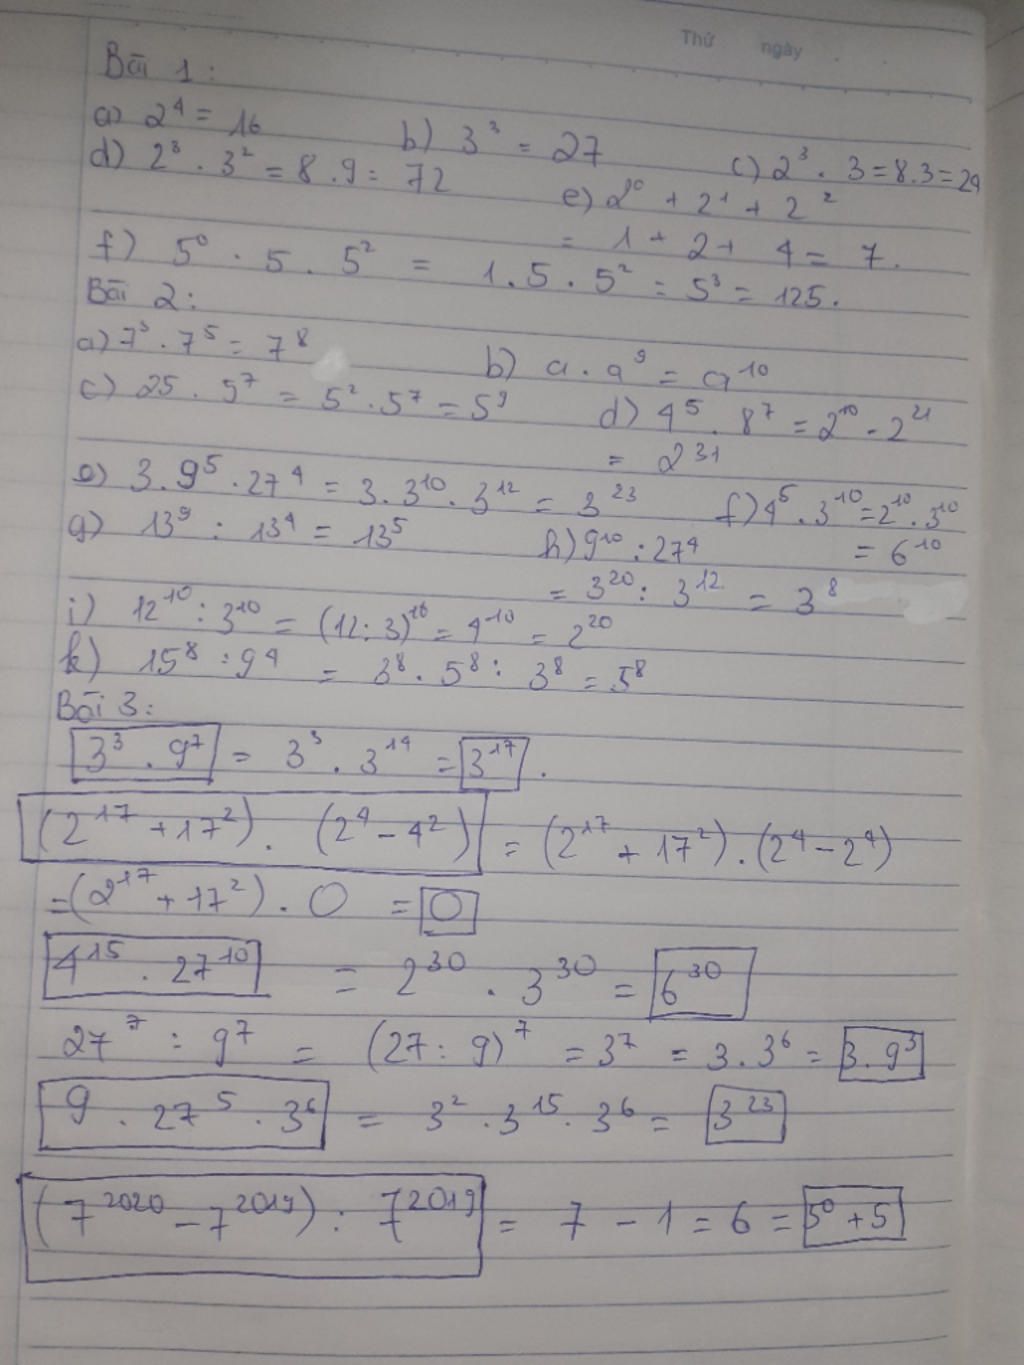 Thứ ngày
Bài 1:
a) 2⁴ = 16 b) 3³ = 27 c) 2³ . 3 = 8.3 = 24
d) 2³ . 3² = 8 . 9 = 72 e) 2⁰ + 2¹ + 2²
= 1 + 2 + 4 = 7.
f) 5⁰ . 5 . 5² = 1 . 5 . 5² = 5³ = 125.
Bài 2:
a) 7³ . 7⁵ = 7⁸ b) a . a⁹ = a¹⁰
c) 25 . 5⁷ = 5² . 5⁷ = 5⁹ d) 4⁵ . 8⁷ = 2¹⁰ . 2²¹
= 2³¹
e) 3 . 9⁵ . 27⁴ = 3 . 3¹⁰ . 3¹² = 3²³ f) 4⁵ . 3¹⁰ = 2¹⁰ . 3¹⁰
g) 13⁹ : 13⁴ = 13⁵ h) 9¹⁰ : 27⁴ = 6¹⁰
= 3²⁰ : 3¹² = 3⁸
i) 12¹⁰ : 3¹⁰ = (12 : 3)¹⁰ = 4¹⁰ = 2²⁰
k) 15⁸ : 9⁴ = 3⁸ . 5⁸ : 3⁸ = 5⁸
Bài 3:
3³ . 9⁷ = 3³ . 3¹⁴ = 3¹⁷ .
(2¹⁷ + 17²) . (2⁴ – 4²) = (2¹⁷ + 17²) . (2⁴ – 2⁴)
= (2¹⁷ + 17²) . 0 = 0
4¹⁵ . 27¹⁰ = 2³⁰ . 3³⁰ = 6³⁰
27⁷ : 9⁷ = (27 : 9)⁷ = 3⁷ = 3 . 3⁶ = 3 . 9³
9 . 27⁵ . 3⁶ = 3² . 3¹⁵ . 3⁶ = 3²³
(7²⁰²⁰ – 7²⁰¹⁹) : 7²⁰¹⁹ = 7 – 1 = 6 = 5⁰ + 5